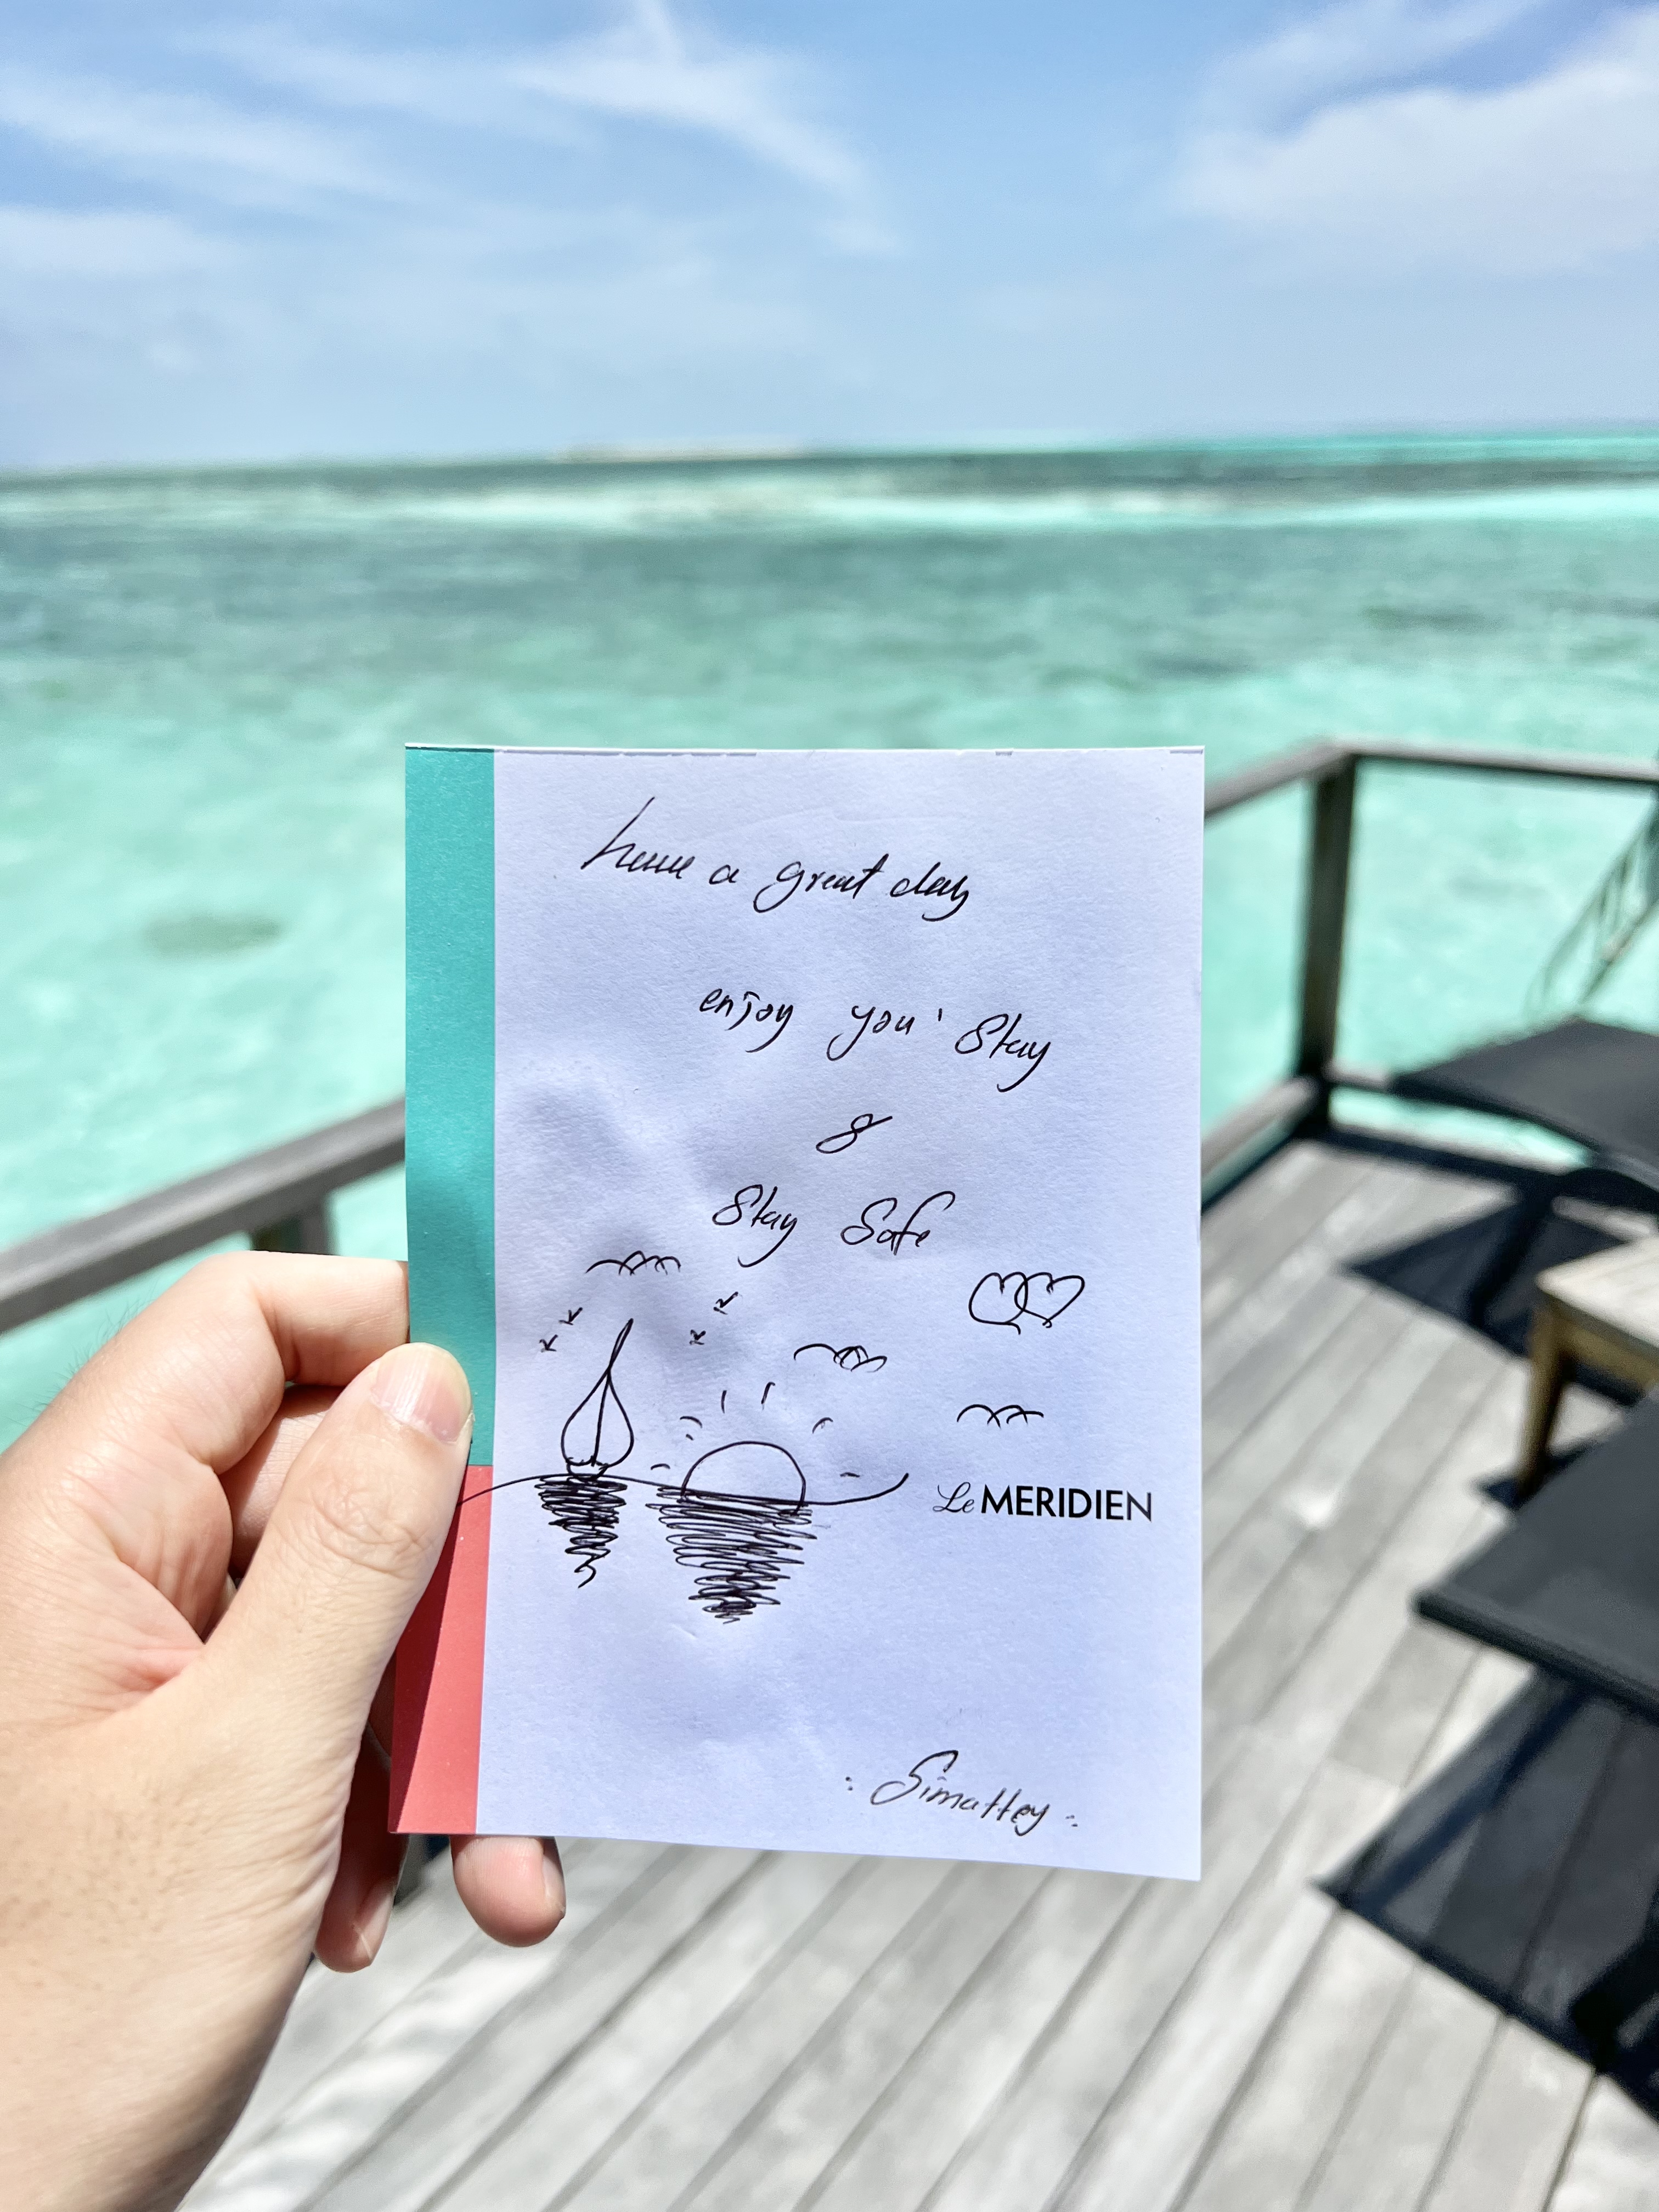 have a great day
enjoy you' Stay
&
Stay Safe
Le MERIDIEN
: Simattey :